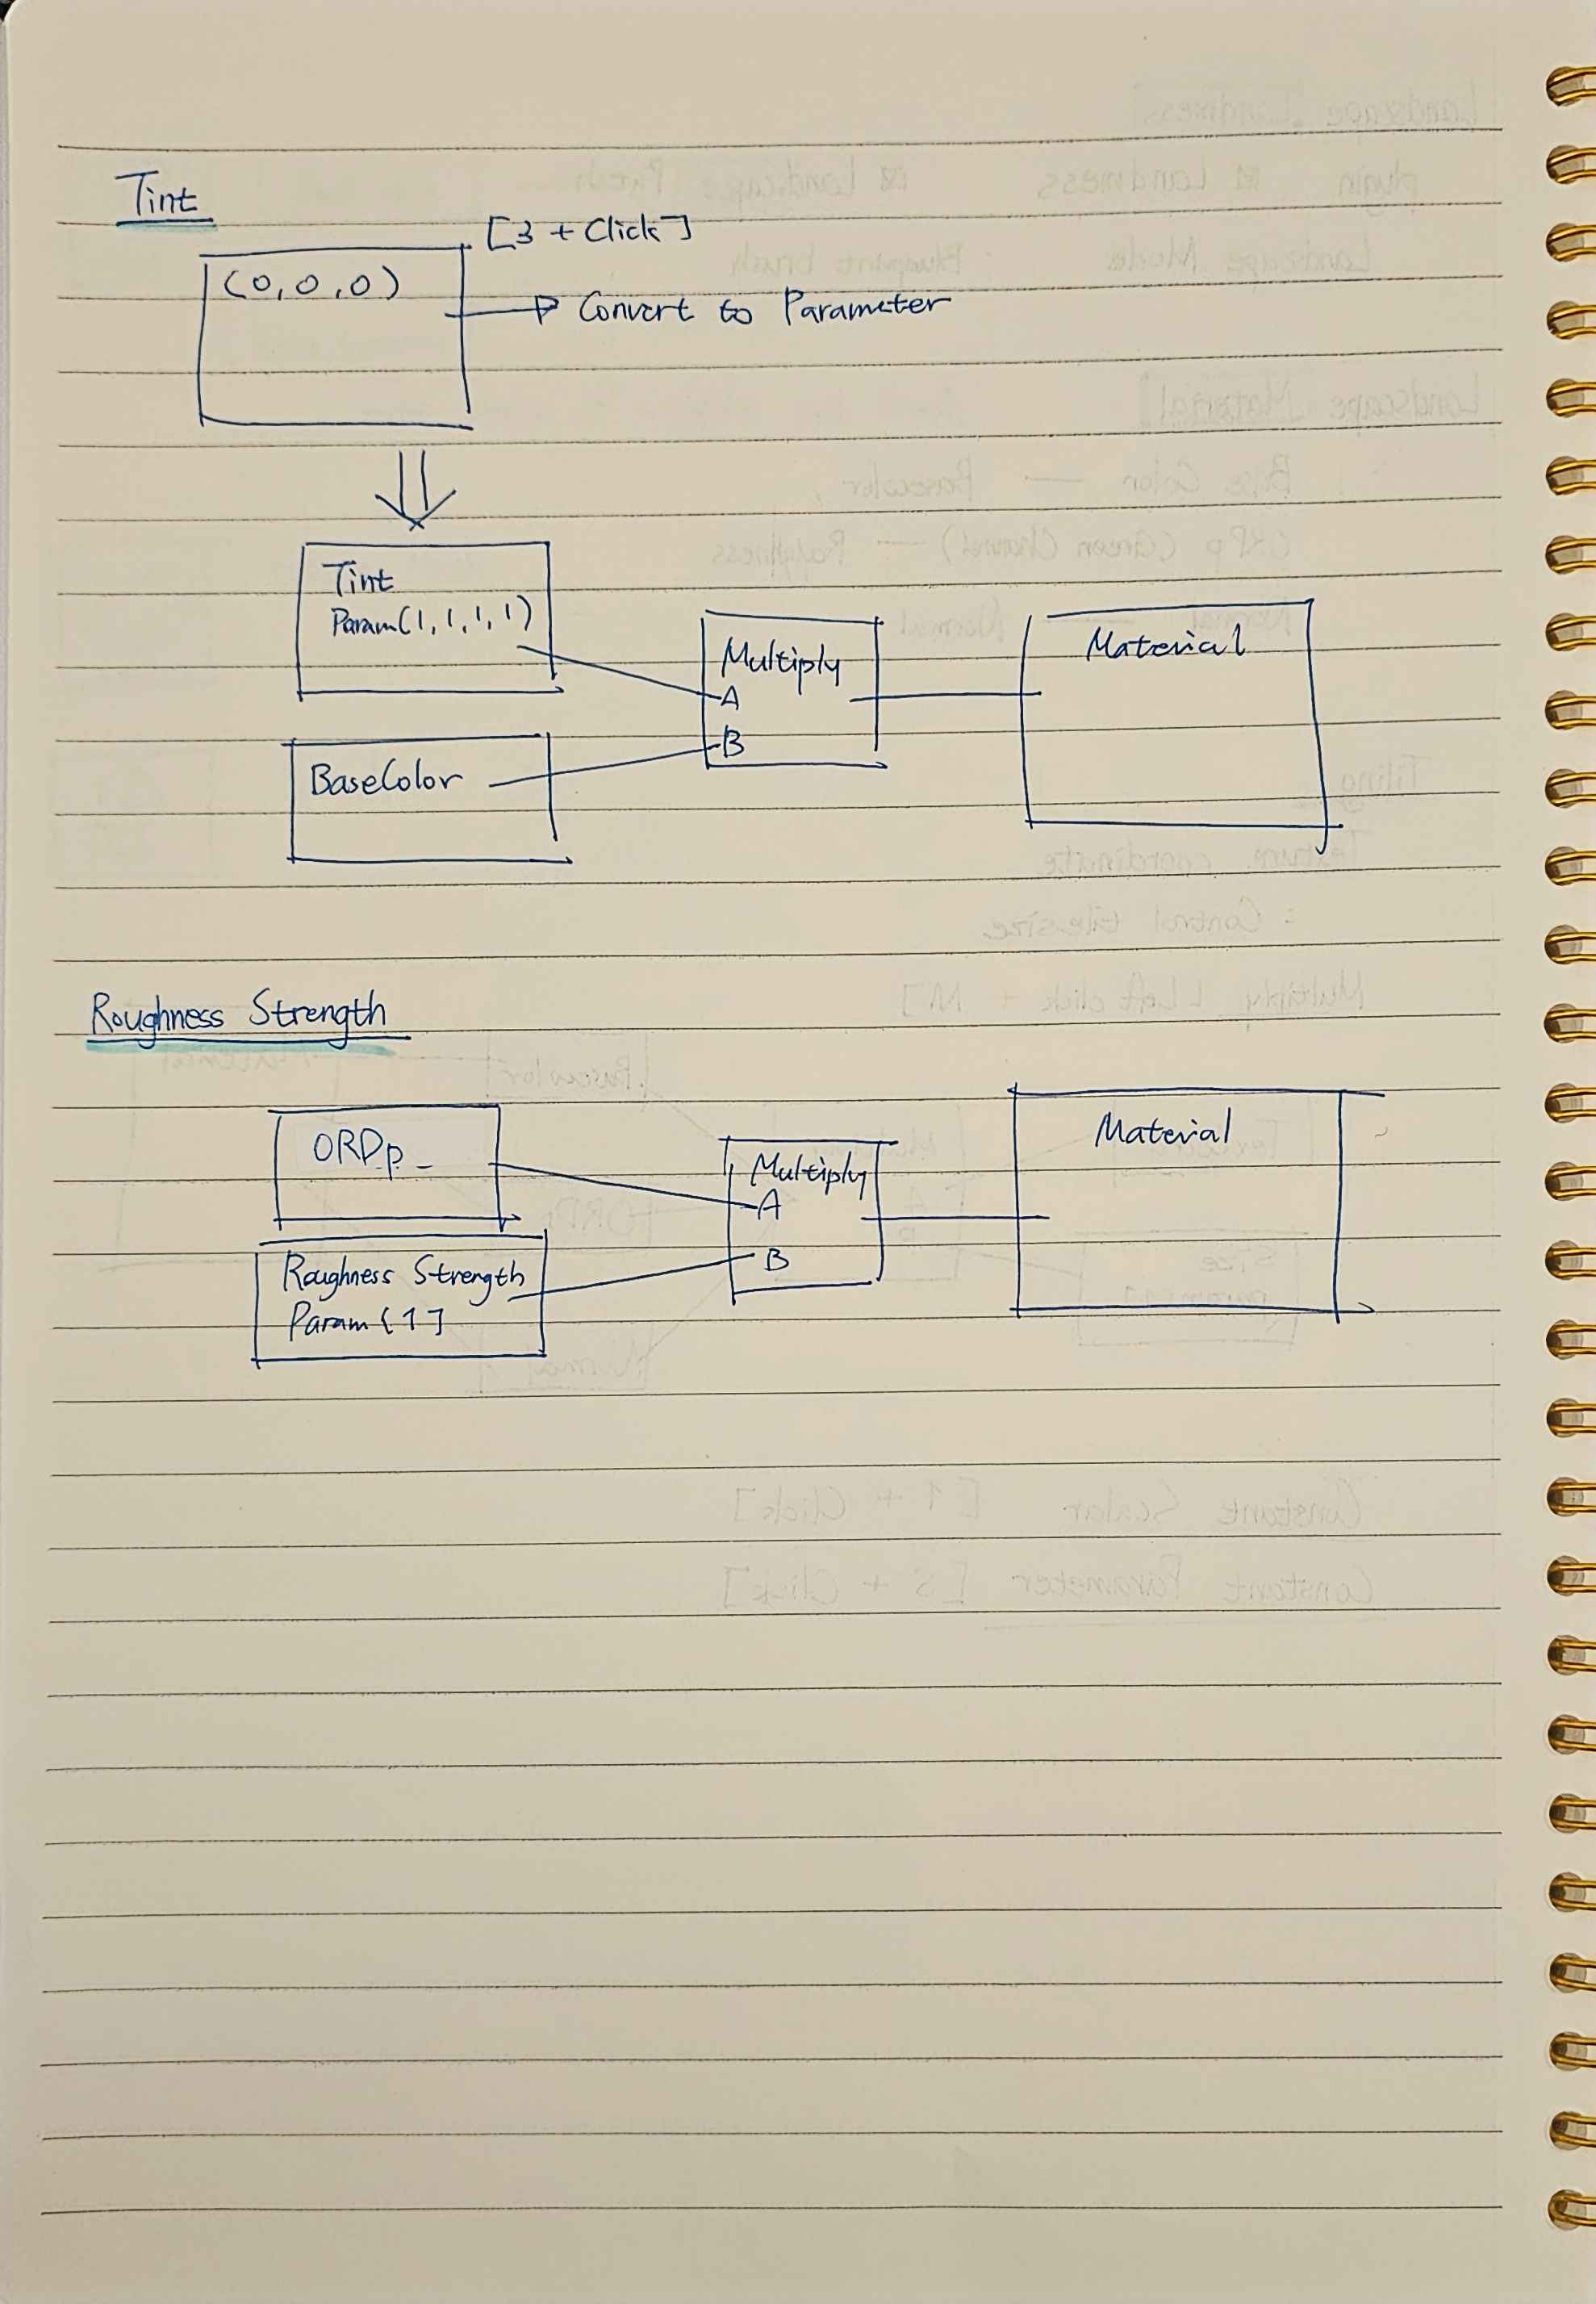 Tint
[3 + Click]
(0, 0, 0)
Convert to Parameter
Tint
Param(1, 1, 1, 1)
Multiply
A
B
Material
BaseColor
Roughness Strength
ORDp
Multiply
A
B
Material
Roughness Strength
Param [1]